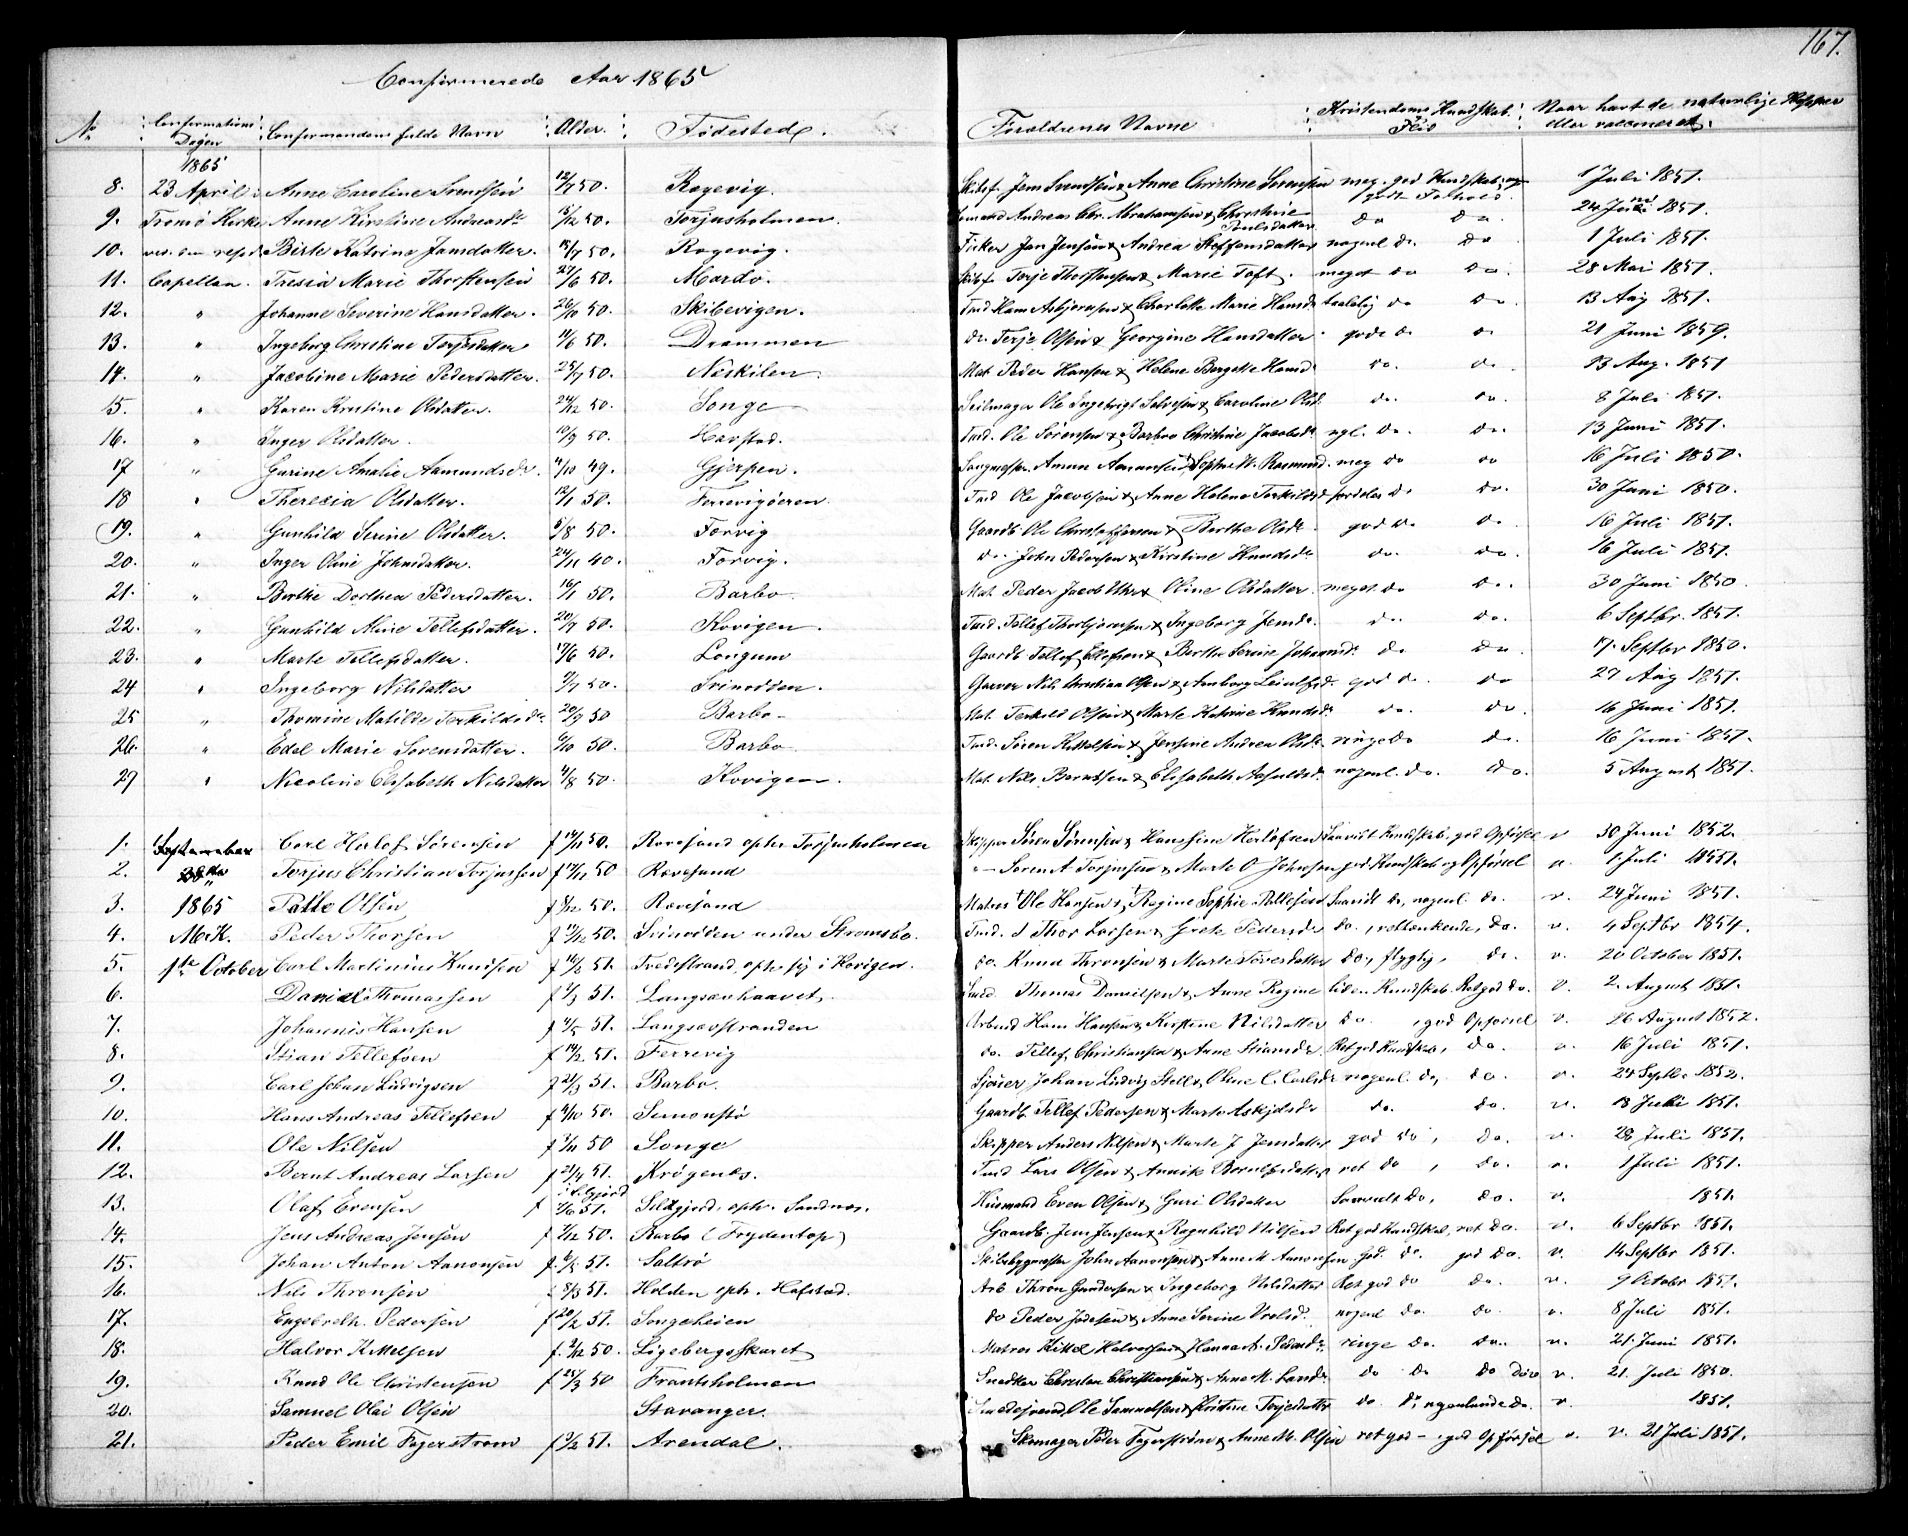 167.
Confirmerede Aar 1865
No Confirmations Dagen Confirmandens fulde Navn Alder. Fødested. Forældrenes Navne Kristendoms Kundskab. Flid Naar havt de naturlige Kopper eller vaccineret.
1865
8. 23 April Anne Caroline Svendsen 12/7 50. Ragevig. Skibsf. Jens Svendsen & Anne Christine Sørensen meg. god Kundskab, og godt Forhold. 1 Juli 1851.
9. Tromø Kirke Anne Kirstine Andreasdr 5/12 50. Torjusholmen. Andreas Chr. Abrahamsen & Christine Poulsdatter do do. 24 Juni 1851.
10. ved den resid Birte Katrine Jansdatter. 18/7 50. Ragevig. Fisker Jan Jensen & Andrea Steffensdatter nogenl. do. do 1 Juli 1851.
11. Capellan. Tresia Marie Thorstensen 27/6 50. Mærdø. Skibsf. Terje Thorstensen & Marie Toft. meget do do. 28 Mai 1851.
12. " Johanne Severine Hansdatter. 26/10 50. Skibevigen. Tmd Hans Asbjørnsen & Charlotte Marie Hansdr taalelig do do. 13 Aug 1851.
13. " Ingeborg Christine Terjesdatter 11/6 50. Drammen do. Terje Olsen & Georgine Hansdatter. gode do o. 21 Juni 1859.
14. " Jacobine Marie Pedersdatter. 25/7 50. Neskilen. Mat. Peder Hansen & Helene Bergette Hansd. do. do. 13 Aug. 1851
15. " Karen Kristine Olsdatter. 24/12 50. Songe Seilmager Ole Ingebrigt Salvesen & Caroline Olsd. do. do. 8 Juli 1851.
16. " Inger Olsdatter. 10/9 50. Havstad. Tmd. Ole Sørensen & Barbro Christine Jacobsdr ngl. do. do. 13 Juni 1851.
17 " Gurine Amalie Aamundsdr. 4/10 49. Gjerpen. meg do do 16 Juli 1850.
18 " Theresia Olsdatter. 12/1 50. Ferrevigøeren. Tmd Ole Jacobsen & Anne Helene Terkildsd do. do. 30 Juni 1850.
19. " Gunhild Serine Olsdatter. 5/8 50. Torvig Gaardb. Ole Christophersen & Berthe Olsdr. god do do. 16 Juli 1851.
20. " Inger Oline Johnsdatter. 24/11 40. Torvig. do. John Pedersen & Kirstine Knudsdr do. do. 16 Juli 1851.
21. " Birthe Dorthea Pedersdatter. 16/1 50. Barbo Mat. Peder Jacob & Oline Olsdatter meget do do. 30 Juni 1850.
22. " Gunhild Aline Tellefsdatter. 20/7 50. Kovigen. Tmd. Tellef Thorbjørnsen & Ingeborg Jensdr. do. do. 6 Septbr. 1851.
23. " Marte Tellefsdatter. 17/6 50. Longum Gaardb. Tellef Ellefsen & Berthe Serine Johannsdr. do do. 17. Septbr 1850.
24 " Ingeborg Nilsdatter 9/7 50. Svinodden. Garver Nils Christian Olsen & Leiulfsd. god do. do 27 Aug 1851.
25 " Thomine Matilde Terkildsdr. 20/9 50 Barbo Mat. Terkild Olsen & Marte Katrine Knudsdr do. do. 16 Juni 1851.
26. " Edel Marie Sørensdatter. 6/10 50. Barbo Tmd. Søren Kittelsen & Jensine Andrea Olsdr ringe do do. 16 Juni 1851.
27 " Nicoline Elisabeth Nilsdatter 4/8 50. Kovigen. Mat. Nils Berntsen & Elisabeth nogenl. do. do. 5 August 1851.
1. September Carl Herlof Sørensen f 14/11 50. Revesand opht. Torjusholmen Skipper Søren Sørensen & Hansine Herlofsen Lavidt Kundskab, god Opførsel v 30 Juni 1852.
2. Torjus Christian Torjussen f 12/11 50 Revesand " Søren A Torjussen & Marte O Johnsen god Kundskab og Opførsel v. 1 Juli 1851.
3. 1865 Palle Olsen f 8/12 50. Revesand Matros Ole Hansen & Regine Sophie Pallesen Lavidt do, nogenl. do. v. 24 Juni 1851.
4. M.K. Peder Thorsen f 13/12 50. Svinodden under Strømsbo. Tmd. Thor Larsen & Grete Pedersdr do., veltænkende, do. v. 4 Septbr 1854.
5. 1ste October Carl Martinius Knudsen f 16/2 51. Tvedestrand, opht. i Kovigen. do. Knud Thronsen & Marte Torersdatter do, flygtig, do. v. 20 October 1851.
6. Daniel Thomassen f 1/3 51. Langsævhaavet. Smed Thomas Danielsen & Anne Regine liden Kundskab. Ret god do. v. 2. August 1851.
7. Johannis Hansen f 4/5 51. Langsævstranden Arbmd Hans Hansen & Kirstine Nilsdatter do. , god Opførsel v. 26 August 1852.
8. Stian Tellefsen f 14/2 51. Ferrevig do. Tellef Christiansen & Anne Stiansdr Ret god Kundskab, do. v. 16 Juli 1851.
9. Carl Johan Ludvigsen f 21/3 51. Barbo. Sjøuer Johan Ludvig & Olene C. Carlsdr nogenl. do, do. v. 24 Septbr. 1852.
10. Hans Andreas Tellefsen f 4/10 50. Semonstø Gaardb. Tellef Pedersen & Marte do. do. v. 18 Juli 1851.
11. Ole Nilsen f 7/11 50 Songe Skipper Anders Nilsen & Marte J Jensdatter god do, do. v. 28 Juli 1851.
12. Bernt Andreas Larsen f 21/4 51. Krøgenes. Tmd Lars Olsen & Annike ret do , do. v. 1 Juli 1851.
13. Olaf Evensen f 7/6 51. opht. Sandnes. Husmand Even Olsen & Guri Olsdatter Lavidt do, do. v. 1851.
14. Jens Andreas Jensen f 7/12 50. Barbo (Frydentop) Gaardb. Jens Jensen & Ragnhild Nilsen Ret god Kundskab, ret do. v. 6 Septbr 1851.
15. Johan Anton Aanonsen f. 6/5 51. Saltrø Skibsbygmester John Aanonsen & Anne M. Aanonsen god. do. god do. v. 14 Septbr 1851.
16. Nils Thronsen f 8/3 51. Holden opht. Hafstad. Arb Thron Gundersen & Ingeborg Nilsdatter Ret god do do. v. 9 October 1851.
17. Engebreth. Pedersen f 20/2 51. Songeheien do Peder & Anne Serine nogenl do. do. v. 8 Juli 1851.
18. Halvor Kittelsen f. 2/12 50. Ligebergsskaret Matros Kittel Halvorsen & Hanna A. Pedersdr. ringe do. do. v. 21. Juni 1851.
19. Knud Ole Christensen f 25/3 50 Frantsholmen Snedker Christen Christiansen & Anne M. do do do Döv v. 21. Juli 1850.
20. Samuel Olai Olsen Stavanger. Ole Samuelsen & Kristine Terjesdatter do do, nogenlunde do. v. 1851.
21. Peder Emil Fagerstrøm f 9/2 51. Arendal. Skomager Peder Fagerstrøm & Anne M. Olsen ret god - , god Opførsel v. v. 21 Juli 1851.